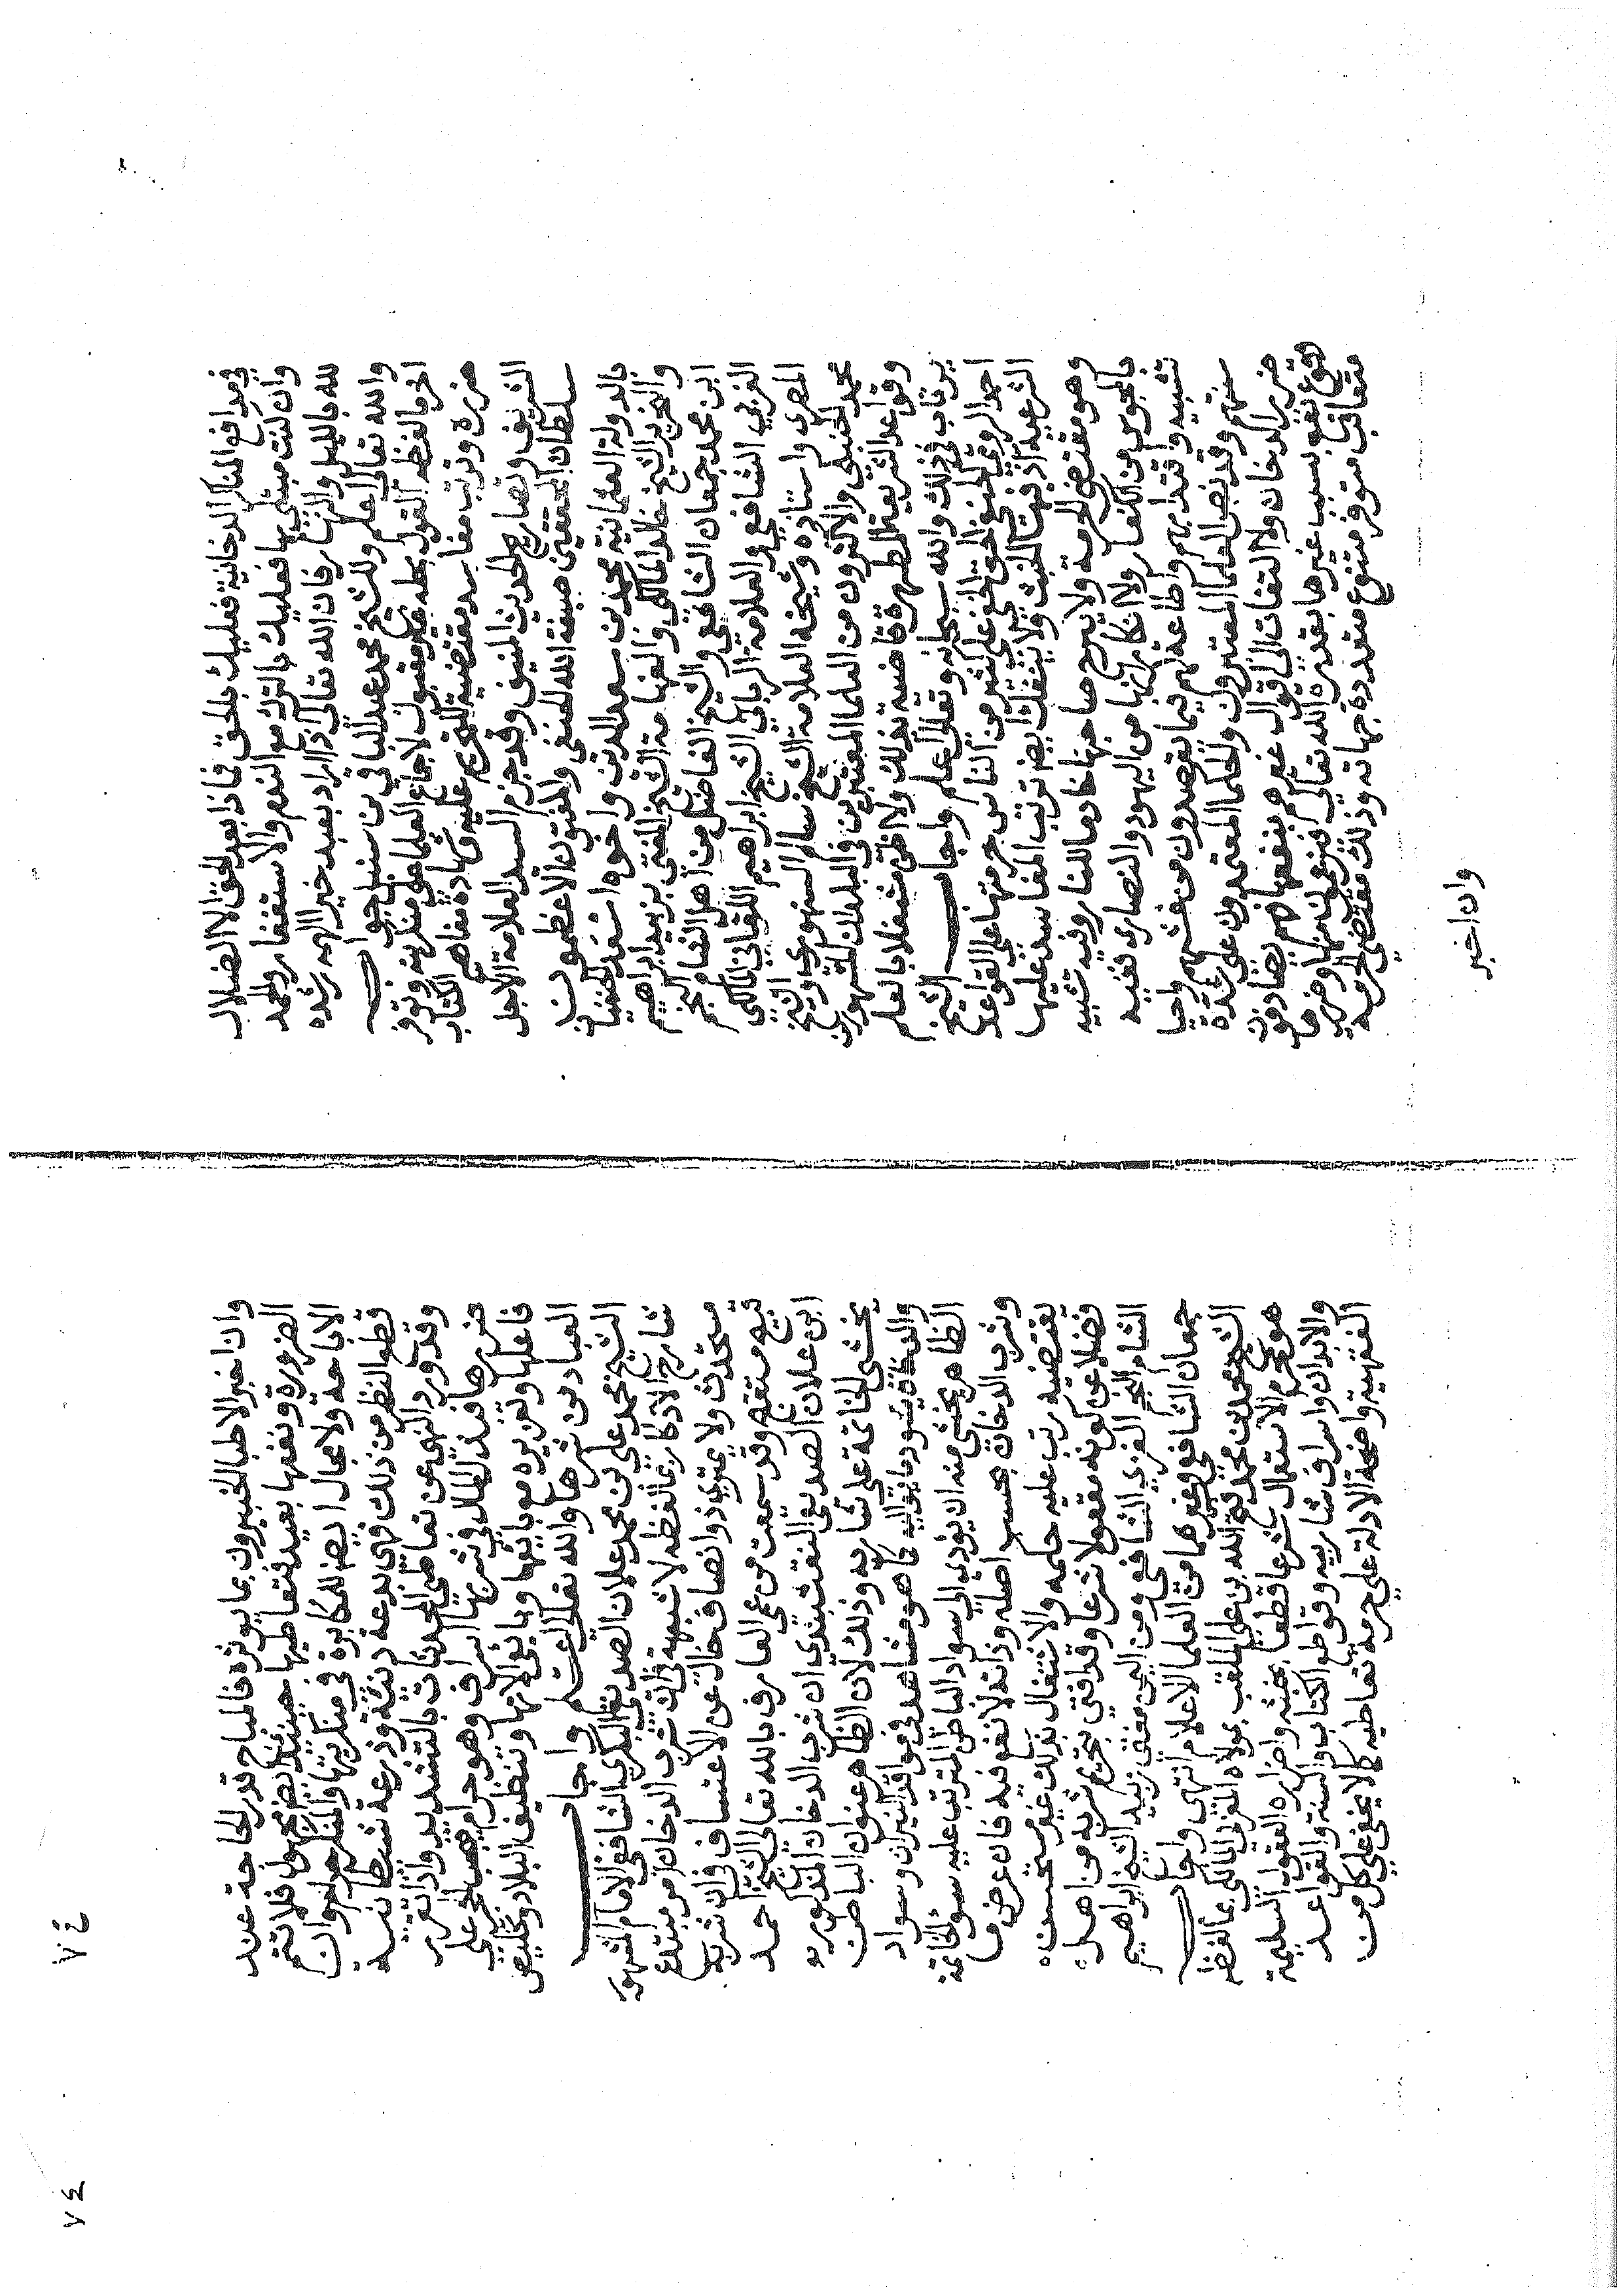 في مدافع المنكر الدخانية فعليك بالحق فماذا بعد الحق الا الضلال
وان كنت مبتلي بها فعليك بالترك مع الندم والاستغفار والحمد
لله بالليل والنهار فان الله تعالى اذا اراد بعبد خيرا الهمه رشده
والله تعالى اعلم وللشيخ محمد عبد الباقي بن سنبل جواب
اخر ما لفظه القول بحله غير مقبول لاجماع العلما على منكريته وتوفر
ضرره وترتب مفاسد مقتضية للتحريم عليه شهادة مفاهيم الكتاب
الشريف وتصاريح الحديث المنيف وقد جزم السيد العلامة الاجل
سلطان المحققين صبغة الله الحنفي والمفتون الاعظمون
بالدولة العثمانية محمد بن سعد الدين واخوه اسعد الحنفيان
والنحرير الشيخ خالد المالكي والفهامة الشيخ المفتي بزبيد ابراهيم
ابن محمد جمعان الشافعي والشيخ الفاضل من اهل الشام النجم
الغزي الشافعي والعلامة الرباني الشيخ ابراهيم اللقاني المالكي
المصري واستاذه وشيخه العلامة الشيخ سالم السنهوري والشيخ
محمد الحنبلي والاكثرون من العلما المعتبرين في البلدان المشهورين
وقواعد الشريعة المطهرة قاضية بذلك ولا اظن مشغلا بالعلم
يرتاب في ذلك والله سبحانه وتعالى اعلم واجاب الشيخ
احمد الرومي الحنفي الحق الخفي على كثير من الناس حرمتها على القواعد
الشرعية اذ فيها الخبث ولا ينفك ايضا ترتب المفاسد عليها
وهو مقتضى الحرمة ولا يبرح صاحبها خادما للنار وفيه تشبيه
بالمجوس من الكفار ولا انكار انها من اليهود والنصارى ففيه
تشبيه واقتدا بهم واطاعة لهم فيما يقصدون من غشهم واحيا
سنتهم وقد نص العلما المعتبرون والحكما المعتمدون على شدة
ضرر الدخان ولا التفات الى قول غيرهم بنفعها فهم يصادفون
وقوع نفع بسبب غيرها بقدرة الله تعالى فيزعمونه منها وضررها
متعاقب متوفر متنوع متعددة جهاته وذلك مقتضي الحرمة
وان اخبر
وان اخبر الاطبا الخبيرون بما يوثره فالمباح قدر الحاجة عند
الضرورة ونفعها بعيد فتعاطيها حينئذ ايضا مجهول فلا تتم
الاباحة ولا مجال ايضا للمكابرة في منكريتها والمنكر حرام وان
قطع النظر من ذلك فهي بدعة دنيئة وذرعة شيطانية
وقد ورد النهي عن تعاطي المحدثات بالتشديد واذا تقرر
ضررها فبذل المال في شربها اسراف وهو حرام فيجب الحجر على
فاعلها وتعزيره مع بايعها وبائع الاتها وتنظيف البلاد وتخليص
العباد من شرها والله تعالى اعلم واجاب
الشيخ محمد علي بن محمد علان الصديقي البكري الشافعي الامام المشهور
شارح الاذكار بما لفظه لا شبهة في ان شرب الدخان امر مبتدع
مستحدث ولا يمتري ذو انصاف خال عن الاعتساف في ان شربه
قبيح مستقبح وقد سمعت من عمي العارف بالله تعالى الشيخ احمد
ابن علان الصديقي النقشبندي ان شرب الدخان المذكور
يخشى الخاتمة على شاربه وذلك لان الظاهر عنوان الباطن
والدخان يسود ما يوالي اليه كما هو مشاهد في مواقد النيران وسواد
الظاهر يخشى منه ان يودي الى سواد الباطن المترتب عليه سوء الخاتمة
وشرب الدخان بحسب اصله وذاته لا نفع فيه فان عرض ما
يقتضيه رتب عليه حكمه والاشتغال بذلك غير مستحسن
فضلا عن كونه مقعولا شرعا وقد افتى بتحريم شربه من اهل
الشام النجم الغزي الشافعي ومن اليمن مفتي زبيد الشيخ ابراهيم
جمعان الشافعي وغيرهما من العلما الاعلام انتهى واجاب
الشيخ محمد بن فتح الله بن علي الملقب بمولاه المغربي المالكي بما لفظه
هو محرم الاستعمال شرعا قطعا بخبثه واضراره العقول السليمة
والابدان واسراف شاربيه وقواطع الكتاب والسنة والقواعد
الفقهية واضحة الادلة على حرمة تعاطيه كما لا يخفى على كل من
٧٤
٧٤